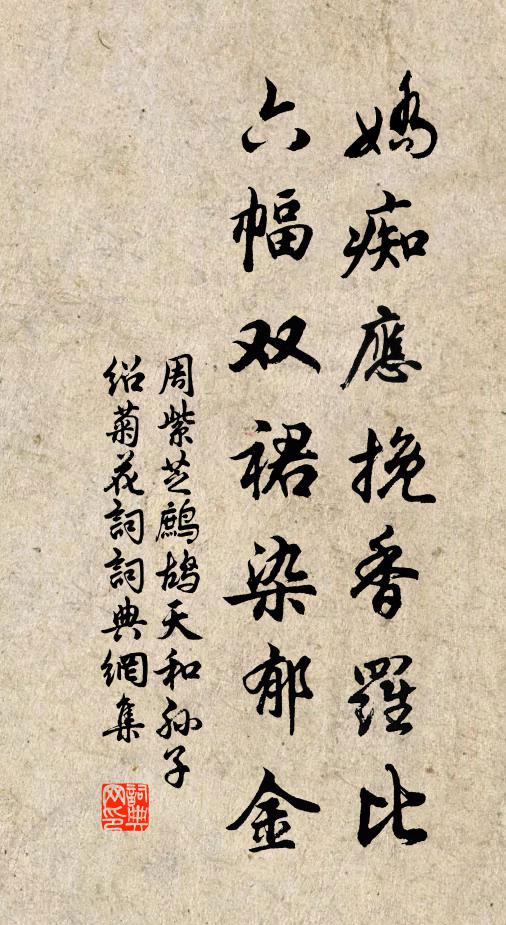 嬌痴應挽香羅比
六幅双裙染郁金
周紫芝鷓鴣天和孙子
绍菊花詞詞典網集
詞典
网印